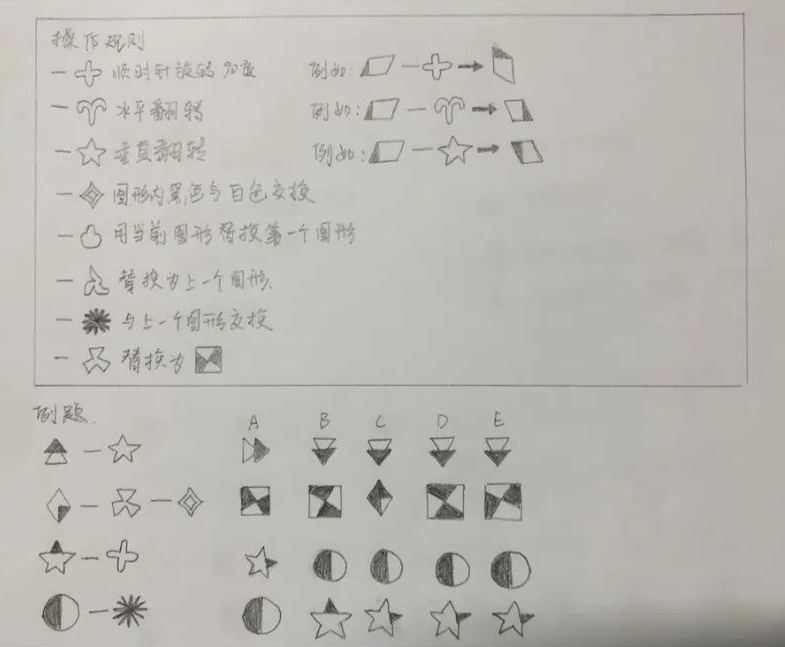 操作规则
一 顺时针旋转90度 例如: 一
一 水平翻转 例如: 一
一 垂直翻转 例如: 一
一 图形内黑色与白色交换
一 用当前图形替换第一个图形
一 替换为上一个图形.
一 与上一个图形交换
一 替换为
例题.
A B C D E